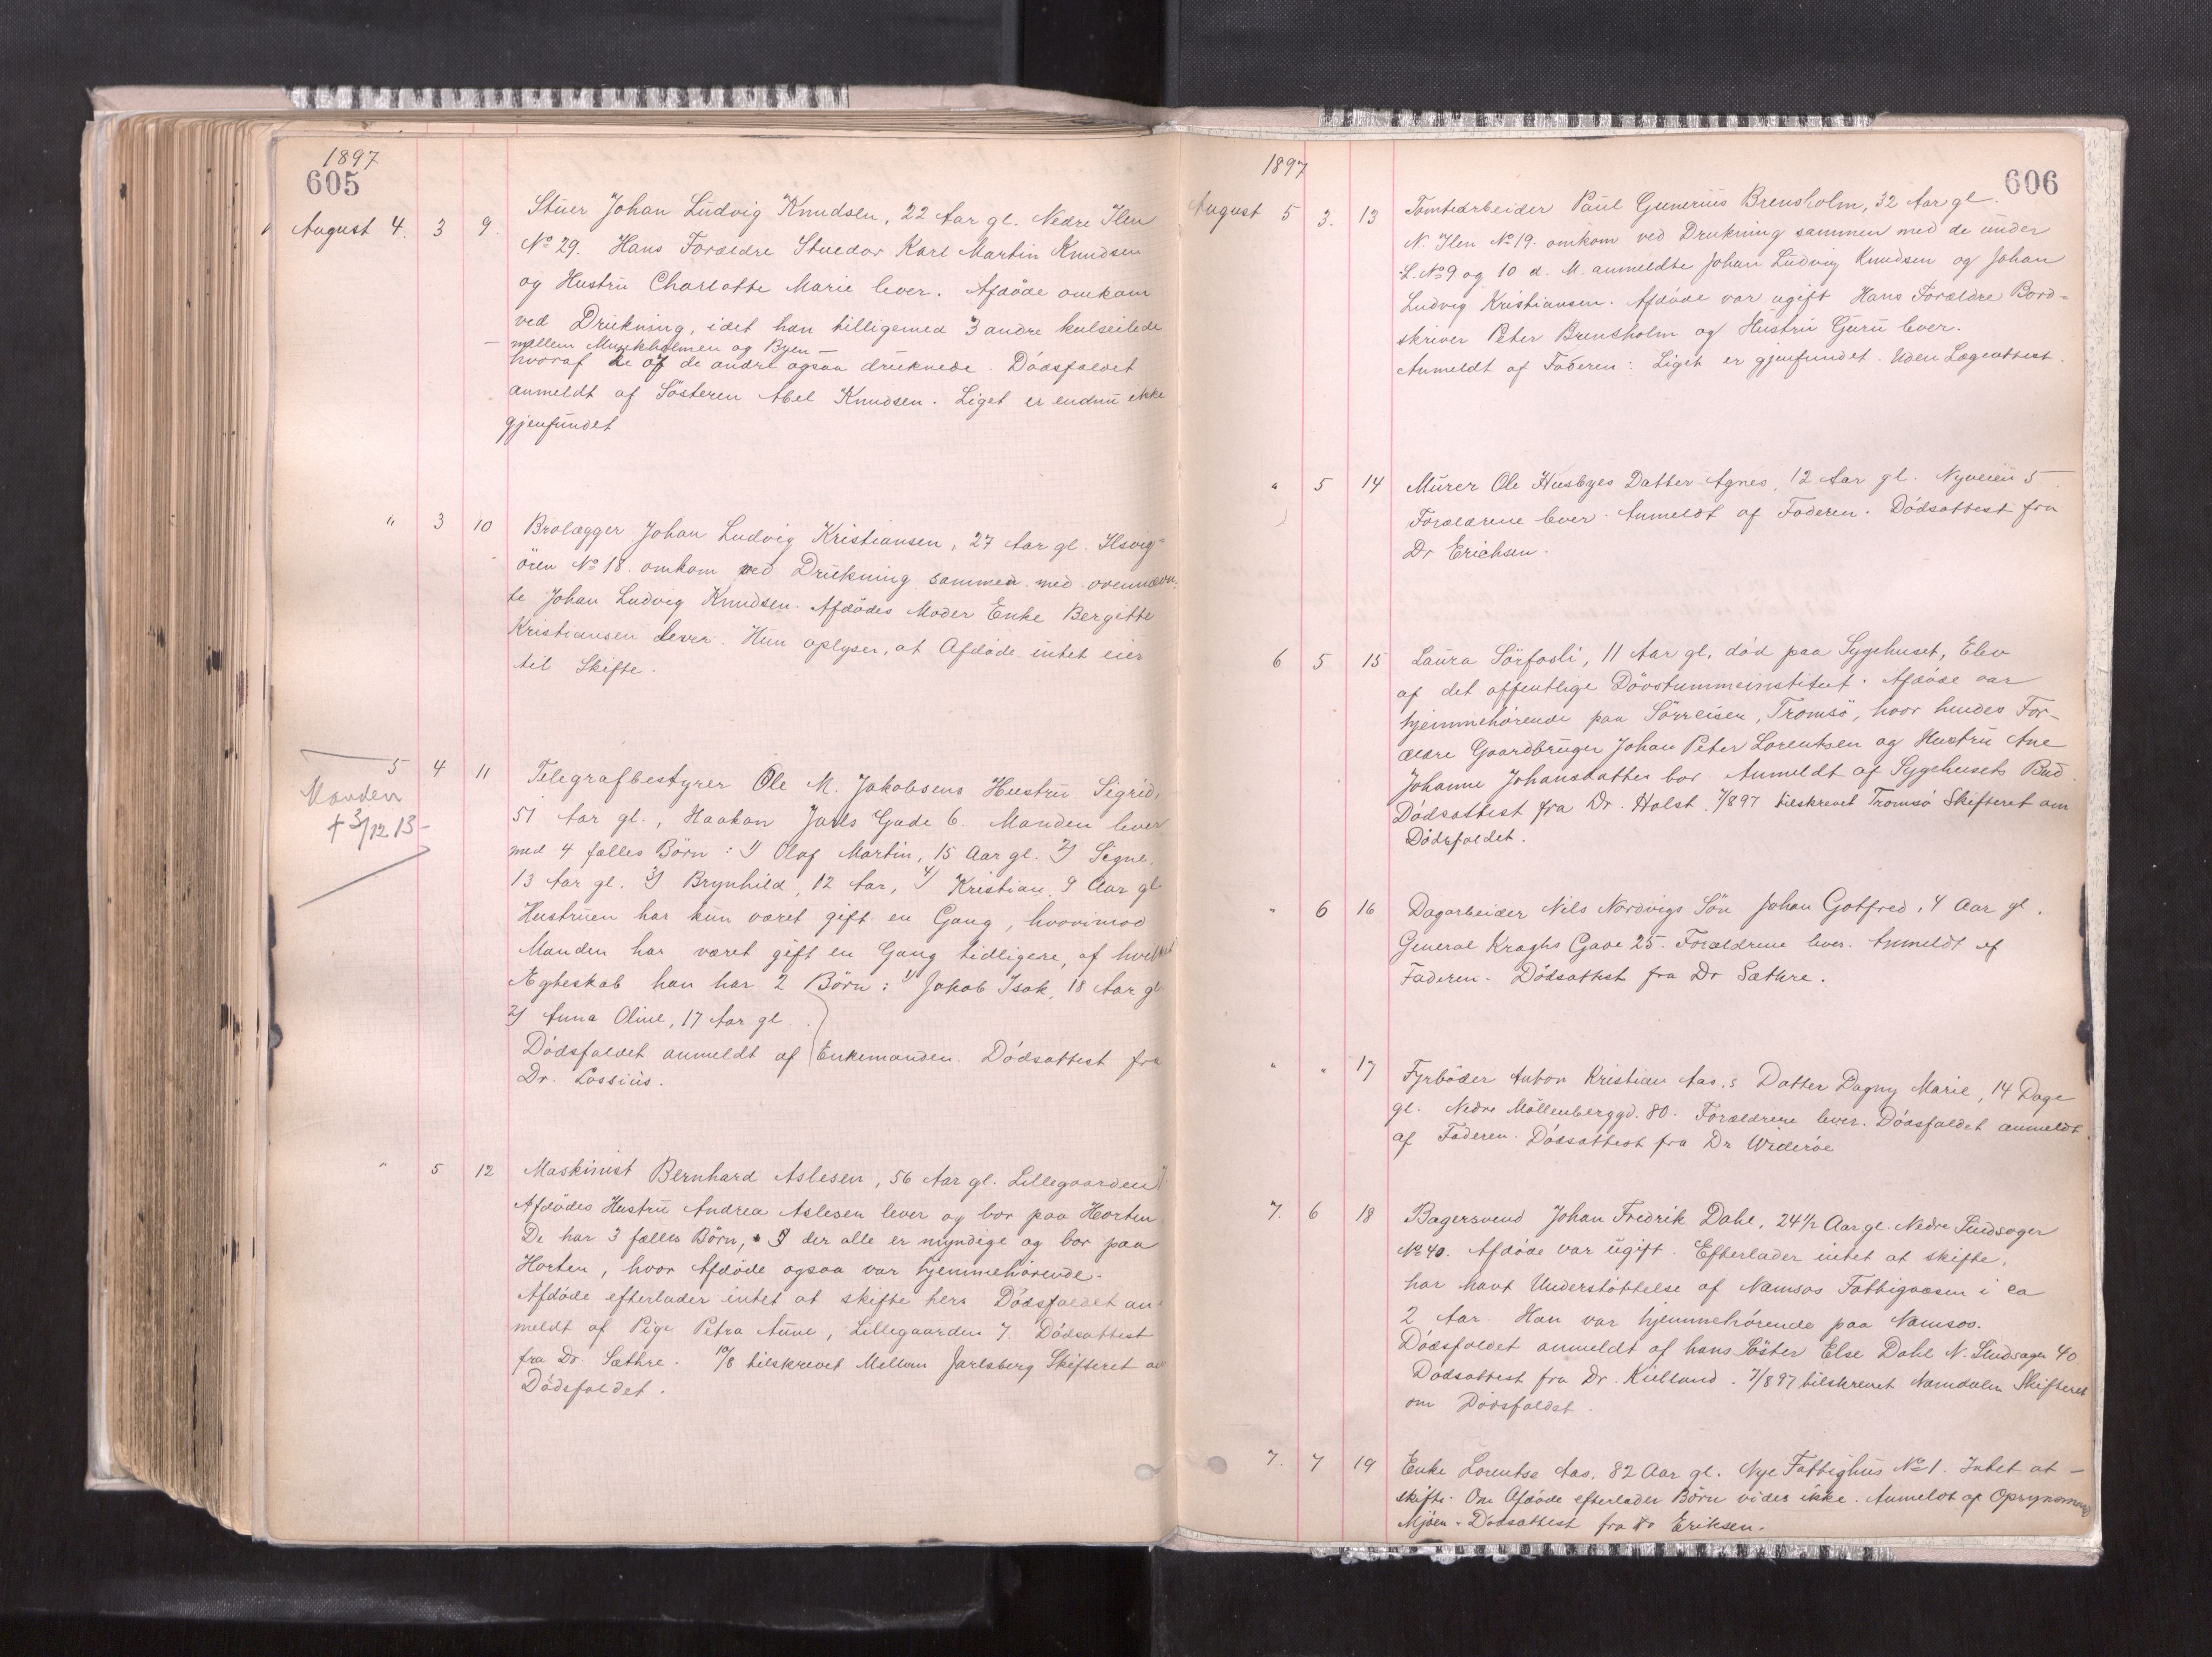 1897
605
August 4. 3 9. Stuer Johan Ludvig Knudsen, 22 Aar gl. Nedre Ilen
No 29. Hans Forældre Stuedor Karl Martin Knudsen
og Hustru Charlotte Marie lever. Afdøde omkom
ved Drukning, idet han tilligemed 3 andre kulseilede
– mellem Munkholmen og Byen –
hvoraf de af de andre ogsaa druknede. Dødsfaldet
anmeldt af Søsteren Abel Knudsen. Liget er endnu ikke
gjenfundet
" 3 10 Brolægger Johan Ludvig Kristiansen, 27 Aar gl. Ilsvig-
ören No 18. omkom ved Drukning sammen med ovennævn-
te Johan Ludvig Knudsen. Afdødes Moder Enke Bergitte
Kristiansen lever. Hun oplyser, at Afdøde intet eier
til Skifte.
5 4 11 Telegrafbestyrer Ole M. Jakobsens Hustru Sigrid,
Manden
+ 3/12 13 –
51 Aar gl., Haakon Jarls Gade 6. Manden lever
med 4 fælles Börn: 1) Olaf Martin, 15 Aar gl. 2) Signe,
13 Aar gl. 3) Brynhild, 12 Aar, 4) Kristian 9 Aar gl.
Hustruen har kun været gift en Gang, hvorimod
Manden har været gift en Gang tidligere, af hvilket
Ægteskab han har 2 Börn: 1) Jakob Isak, 18 Aar gl
2) Anna Oline, 17 Aar gl.
Dödsfaldet anmeldt af Enkemanden. Dödsattest fra
Dr. Lossius.
" 5 12 Maskinist Bernhard Aslesen, 56 Aar gl. Lillegaarden 7.
Afdødes Hustru Andrea Aslesen lever og bor paa Horten.
De har 3 fælles Börn, der alle er myndige og bor paa
Horten, hvor Afdøde ogsaa var hjemmehörende.
Afdøde efterlader intet at skifte her. Dödsfaldet an-
meldt af Pige Petra Aune, Lillegaarden 7. Dödsattest
fra Dr. Sæthre. 10/8 tilskrevet Mellem Jarlsberg Skifteret om
Dödsfaldet.
1897
606
August 5 3. 13 Tomtearbeider Paul Gunerius Brensholm, 32 Aar gl.
N. Ilen No 19. omkom ved Drukning sammen med de under
L. No 9 og 10 d. M. anmeldte Johan Ludvig Knudsen og Johan
Ludvig Kristiansen. Afdøde var ugift. Hans Forældre Bord-
skriver Peter Brensholm og Hustru Guru lever.
Anmeldt af Faderen: Liget er gjenfundet. Uden Lægeattest.
" 5 14 Murer Ole Husbyes Datter Agnes, 12 Aar gl. Nyveien 5
Forældrene lever. Anmeldt af Faderen. Dödsattest fra
Dr Erichsen.
6 5 15 Laura Sörfosli, 11 Aar gl. död paa Sygehuset, Elev
af det offentlige Dövstummeinstitut. Afdøde var
hjemmehörende paa Sörreisen, Tromsö, hvor hendes For-
ældre Gaardbruger Johan Peter Lorentsen og Hustru Ane
Johanne Johansdatter bor. Anmeldt af Sygehusets Bud.
Dödsattest fra Dr. Holst. 7/8 97 tilskrevet Tromsö Skifteret om
Dödsfaldet.
" 6 16 Dagarbeider Nils Nordvigs Sön Johan Gotfred, 4 Aar gl.
General Kraghs Gade 25. Forældrene lever. Anmeldt af
Faderen. Dödsattest fra Dr Sæthre.
" " 17 Fyrböder Anton Kristian Aas,s Datter Dagny Marie, 14 Dage
gl. Nedre Möllenberggd. 80. Forældrene lever. Dödsfaldet anmeldt
af Faderen. Dödsattest fra Dr Wideröe
7. 6 18 Bagersvend Johan Fredrik Dahl, 24 1/2 Aar gl. Nedre
No 40. Afdøde var ugift. Efterlader intet at skifte,
har havt Understöttelse af Namsos Fattigvæsen i ca
2 Aar. Han var hjemmehörende paa Namsos.
Dödsfaldet anmeldt af hans Söster Else Dahl N. 40.
Dödsattest fra Dr. Kielland. 7/8 97 tilskrevet Namdalen Skifteret
om Dödsfaldet.
7. 7 19 Enke Lorentse Aas, 82 Aar gl. Nye Fattighus No 1. Intet at –
skifte. Om Afdøde efterlader Börn vides ikke. Anmeldt af Opsynsmand
Mjöen. Dödsattest fra Dr Eriksen.